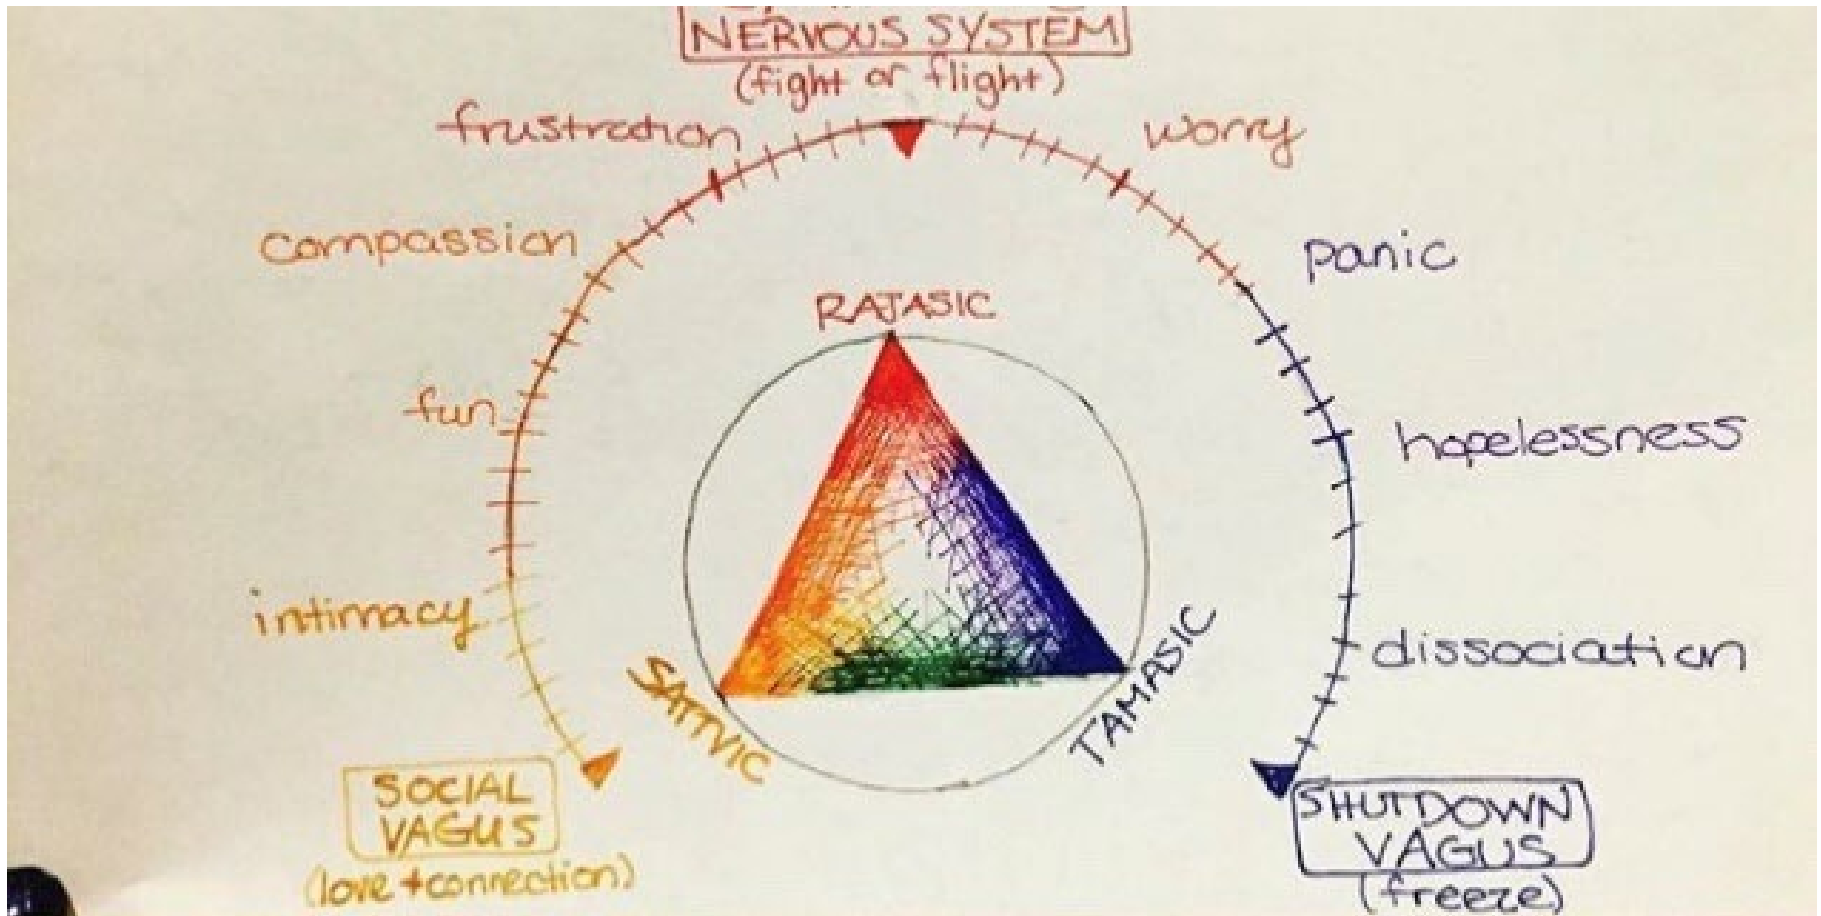 NERVOUS SYSTEM
(fight or flight)
frustration
worry
compassion
panic
RAJASIC
fun
hopelessness
intimacy
dissociation
SATTVIC
TAMASIC
SOCIAL
VAGUS
(love + connection)
SHUTDOWN
VAGUS
(freeze)